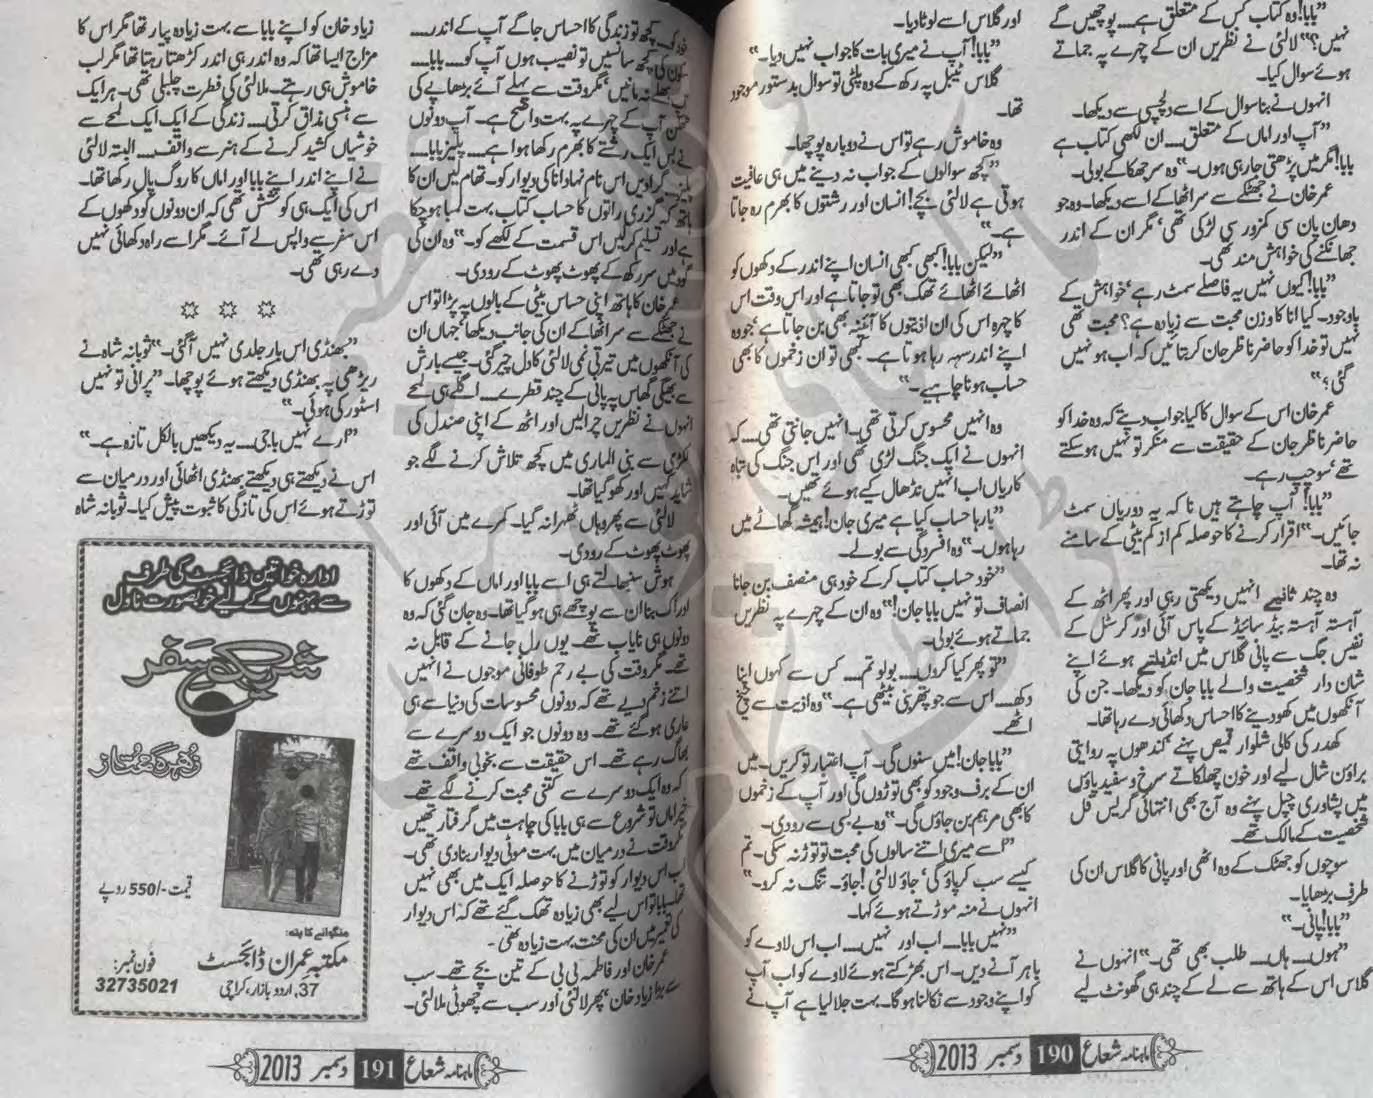 ”بابا! وہ کتاب کس کے متعلق ہے۔۔۔۔ پوچھیں گے
نہیں؟“ لالئی نے نظریں ان کے چہرے پہ جماتے
ہوئے سوال کیا۔
انہوں نے بنا سوال کے اسے دلچسپی سے دیکھا۔
”آپ اور اماں کے متعلق۔۔۔۔ ان لکھی کتاب ہے
بابا! مگر میں پڑھتی جا رہی ہوں۔“ وہ سر جھکا کے بولی۔
عمر خان نے جھٹکے سے سر اٹھا کے اسے دیکھا۔ وہ جو
دھان پان سی کمزور سی لڑکی تھی، مگر ان کے اندر
جھانکنے کی خواہش مند تھی۔
”بابا! کیوں نہیں یہ فاصلے سمٹ رہے، خواہش کے
باوجود۔ کیا انا کا وزن محبت سے زیادہ ہے؟ محبت تھی
نہیں تو خدا کو حاضر ناظر جان کر بتائیں کہ اب ہو نہیں
گئی؟“
عمر خان اس کے سوال کا کیا جواب دیتے کہ وہ خدا کو
حاضر ناظر جان کے حقیقت سے منکر تو نہیں ہو سکتے
تھے، سو چپ رہے۔
”بابا! آپ چاہتے ہیں نا کہ یہ دوریاں سمٹ
جائیں۔“ اقرار کرنے کا حوصلہ کم از کم بیٹی کے سامنے
نہ تھا۔
وہ چند ثانیے انہیں دیکھتی رہی اور پھر اٹھ کے
آہستہ آہستہ بیڈ سائیڈ کے پاس آئی اور کرسٹل کے
نفیس جگ سے پانی گلاس میں انڈیلتے ہوئے اپنے
شان دار شخصیت والے بابا جان کو دیکھا۔ جن کی
آنکھوں میں کھو دینے کا احساس دکھائی دے رہا تھا۔
کھدر کی کالی شلوار قمیص پہنے، کندھوں پہ روایتی
براؤن شال لیے اور خون چھلکاتے سرخ و سفید پاؤں
میں پشاوری چپل پہنے وہ آج بھی انتہائی گریس فل
شخصیت کے مالک تھے۔
سوچوں کو جھٹک کے وہ اٹھی اور پانی کا گلاس ان کی
طرف بڑھایا۔
”بابا! پانی۔“
”ہوں۔۔۔۔ ہاں۔۔۔۔ طلب بھی تھی۔“ انہوں نے
گلاس اس کے ہاتھ سے لے کے چند ہی گھونٹ لیے
اور گلاس اسے لوٹا دیا۔
”بابا! آپ نے میری بات کا جواب نہیں دیا۔“
گلاس ٹیبل پہ رکھ کے وہ پلٹی تو سوال بدستور موجود
تھا۔
وہ خاموش رہے تو اس نے دوبارہ پوچھا۔
”کچھ سوالوں کے جواب نہ دینے میں ہی عافیت
ہوتی ہے لالئی بچے! انسان اور رشتوں کا بھرم رہ جاتا
ہے۔“
”لیکن بابا! کبھی کبھی انسان اپنے اندر کے دکھوں کو
اٹھائے اٹھائے تھک بھی تو جاتا ہے اور اس وقت اس
کا چہرہ اس کی ان اذیتوں کا آئینہ بھی بن جاتا ہے، جو وہ
اپنے اندر سہہ رہا ہوتا ہے۔ کبھی تو ان زخموں کا بھی
حساب ہونا چاہیے۔“
وہ انہیں محسوس کرتی تھی۔ انہیں جانتی تھی۔۔۔۔ کہ
انہوں نے ایک جنگ لڑی تھی اور اس جنگ کی تباہ
کاریاں اب انہیں نڈھال کیے ہوئے تھیں۔
”بارہا حساب کیا ہے میری جان! ہمیشہ گھاٹے میں
رہا ہوں۔“ وہ افسردگی سے بولے۔
”خود حساب کتاب کر کے خود ہی منصف بن جانا
انصاف تو نہیں بابا جان!“ وہ ان کے چہرے پہ نظریں
جماتے ہوئے بولی۔
”تو پھر کیا کروں۔۔۔۔ بولو تم۔۔۔۔ کس سے کہوں اپنا
دکھ۔۔۔۔ اس سے جو پتھر بنی بیٹھی ہے۔“ وہ اذیت سے چیخ
اٹھے۔
”بابا جان! میں سنوں گی۔ آپ اعتبار تو کریں۔ میں
ان کے برف وجود کو بھی توڑوں گی اور آپ کے زخموں
کا بھی مرہم بن جاؤں گی۔“ وہ بے بسی سے رو دی۔
”اسے میری اتنے سالوں کی محبت تو توڑ نہ سکی۔ تم
کیسے سب کر پاؤ گی، جاؤ لالئی! جاؤ۔ تنگ نہ کرو۔“
انہوں نے منہ موڑتے ہوئے کہا۔
”نہیں بابا۔۔۔۔ اب اور نہیں۔۔۔۔ اب اس لاوے کو
باہر آنے دیں۔ اس بھڑکتے ہوئے لاوے کو اب آپ
کو اپنے وجود سے نکالنا ہوگا۔ بہت جلا لیا ہے آپ نے
ماہنامہ شعاع 190 دسمبر 2013
خود کو۔۔۔۔ کچھ تو زندگی کا احساس جاگے آپ کے اندر۔۔۔۔
سکون کی کچھ سانسیں تو نصیب ہوں آپ کو۔۔۔۔ بابا۔۔۔۔
آپ بھلے نہ مانیں، مگر وقت سے پہلے آئے بڑھاپے کی
تھکن آپ کے چہرے پہ بہت واضح ہے۔ آپ دونوں
نے بس ایک رشتے کا بھرم رکھا ہوا ہے۔۔۔۔ پلیز بابا۔۔۔۔
پلیز۔۔۔۔ گرا دیں اس نام نہاد انا کی دیوار کو۔ تھام لیں ان کا
ہاتھ کہ گزری راتوں کا حساب کتاب بہت لمبا ہو چکا
ہے اور تسلیم کر لیں اس قسمت کے لکھے کو۔“ وہ ان کی
گود میں سر رکھ کے پھوٹ پھوٹ کے رو دی۔
عمر خان کا ہاتھ اپنی حساس بیٹی کے بالوں پہ پڑا تو اس
نے جھٹکے سے سر اٹھا کے ان کی جانب دیکھا، جہاں ان
کی آنکھوں میں تیرتی نمی لالئی کا دل چیر گئی۔ جیسے بارش
سے بھیگی گھاس پہ پانی کے چند قطرے۔۔۔۔ اگلے ہی لمحے
انہوں نے نظریں چرا لیں اور اٹھ کے اپنی صندل کی
لکڑی سے بنی الماری میں کچھ تلاش کرنے لگے جو
شاید کہیں اور کھو گیا تھا۔
لالئی سے پھر وہاں ٹھہرا نہ گیا۔ کمرے میں آئی اور
پھوٹ پھوٹ کے رو دی۔
ہوش سنبھالتے ہی اسے بابا اور اماں کے دکھوں کا
ادراک بنا ان سے پوچھے ہی ہو گیا تھا۔ وہ جان گئی کہ وہ
دونوں ہی نایاب تھے۔ یوں رل جانے کے قابل نہ
تھے۔ مگر وقت کی بے رحم طوفانی موجوں نے انہیں
اتنے زخم دیے تھے کہ دونوں محسوسات کی دنیا سے ہی
عاری ہو گئے تھے۔ وہ دونوں جو ایک دوسرے سے
بھاگ رہے تھے۔ اس حقیقت سے بخوبی واقف تھے
کہ وہ ایک دوسرے سے کتنی محبت کرنے لگے تھے۔
خیر اماں تو شروع سے ہی بابا کی چاہت میں گرفتار تھیں
مگر وقت نے درمیان میں بہت موٹی دیوار بنا دی تھی۔
اب اس دیوار کو توڑنے کا حوصلہ ایک میں بھی نہیں
تھا۔ بابا تو اس لیے بھی زیادہ تھک گئے تھے کہ اس دیوار
کی تعمیر میں ان کی محنت بہت زیادہ تھی۔
عمر خان اور فاطمہ بی بی کے تین بچے تھے۔ سب
سے بڑا زیاد خان، پھر لالئی اور سب سے چھوٹی ملالئی۔
زیاد خان کو اپنے بابا سے بہت زیادہ پیار تھا مگر اس کا
مزاج ایسا تھا کہ وہ اندر ہی اندر کڑھتا رہتا تھا مگر لب
خاموش ہی رہتے۔ ملالئی کی فطرت چلبلی تھی۔ ہر ایک
سے ہنسی مذاق کرتی۔۔۔۔ زندگی کے ایک ایک لمحے سے
خوشیاں کشید کرنے کے ہنر سے واقف۔۔۔۔ البتہ لالئی
نے اپنے اندر اپنے بابا اور اماں کا روگ پال رکھا تھا۔
اس کی ایک ہی کوشش تھی کہ ان دونوں کو دکھوں کے
اس سفر سے واپس لے آئے۔ مگر اسے راہ دکھائی نہیں
دے رہی تھی۔
☼ ☼ ☼
”بھنڈی اس بار جلدی نہیں آگئی۔“ ثوبانہ شاہ نے
ریڑھی پہ بھنڈی دیکھتے ہوئے پوچھا۔ ”پرانی تو نہیں
اسٹور کی ہوئی۔“
”ارے نہیں باجی۔۔۔۔ یہ دیکھیں بالکل تازہ ہے۔“
اس نے دیکھتے ہی دیکھتے بھنڈی اٹھائی اور درمیان سے
توڑتے ہوئے اس کی تازگی کا ثبوت پیش کیا۔ ثوبانہ شاہ
ادارہ خواتین ڈائجسٹ کی طرف
سے بہنوں کے لیے خوبصورت ناول
شریک سفر
زہرہ ممتاز
قیمت -/550 روپے
منگوانے کا پتہ:
مکتبہ عمران ڈائجسٹ
37, اردو بازار، کراچی
فون نمبر:
32735021
ماہنامہ شعاع 191 دسمبر 2013